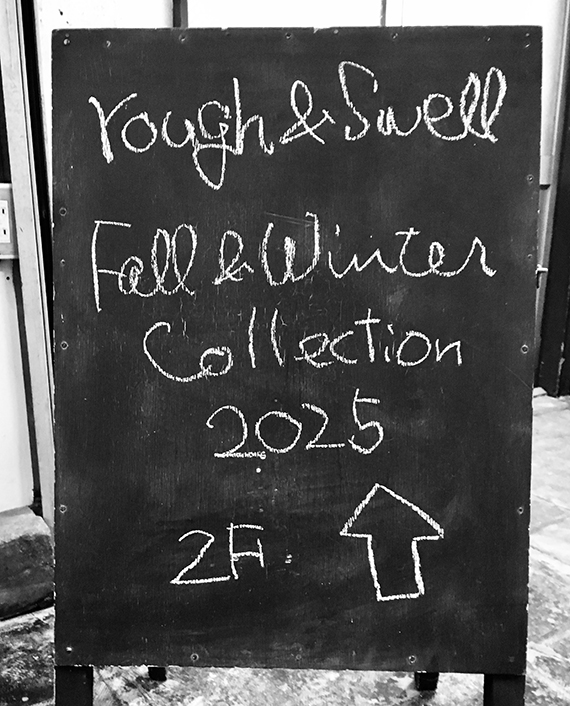 rough & Swell
Fall & Winter
Collection
2025
2F.